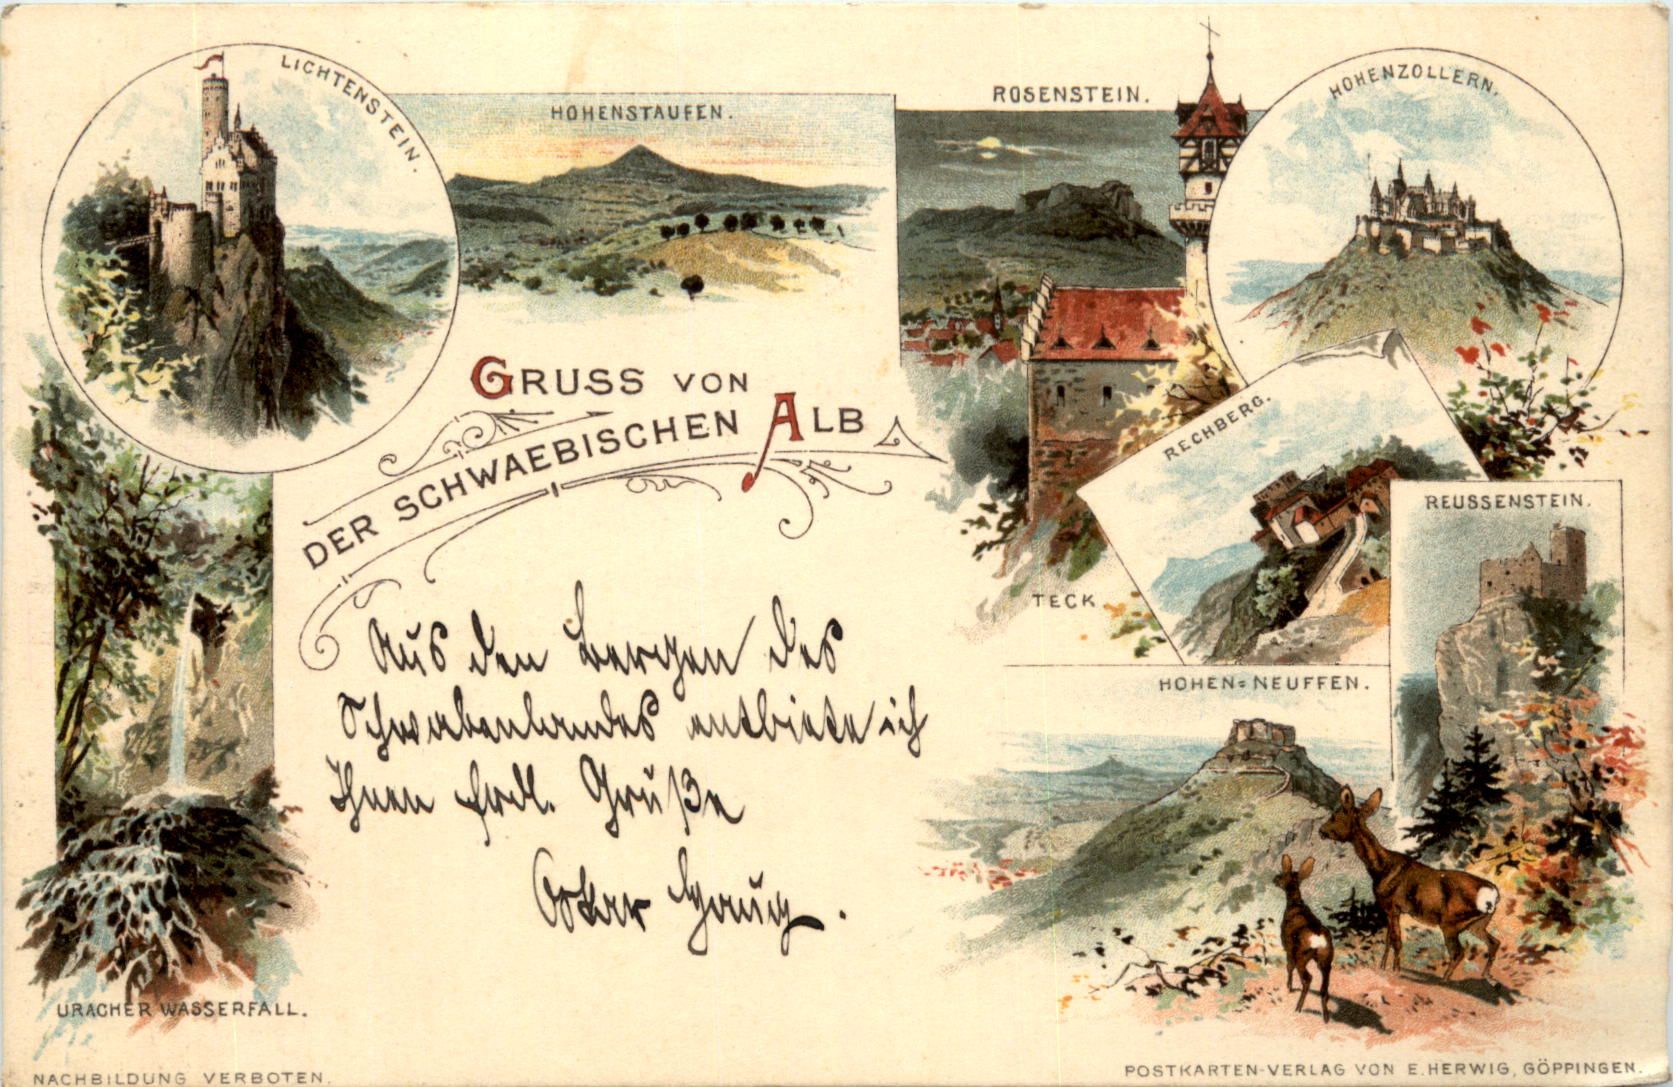 LICHTENSTEIN
HOHENSTAUFEN.
ROSENSTEIN.
HOHENZOLLERN.
GRUSS VON
DER SCHWAEBISCHEN ALB
RECHBERG.
REUSSENSTEIN.
TECK.
HOHEN=NEUFFEN.
Aus den Bergen des
Schwabenlandes entbiete ich
Ihnen frdl. Grüße
Oskar
URACHER WASSERFALL.
NACHBILDUNG VERBOTEN.
POSTKARTEN-VERLAG VON E. HERWIG, GÖPPINGEN.